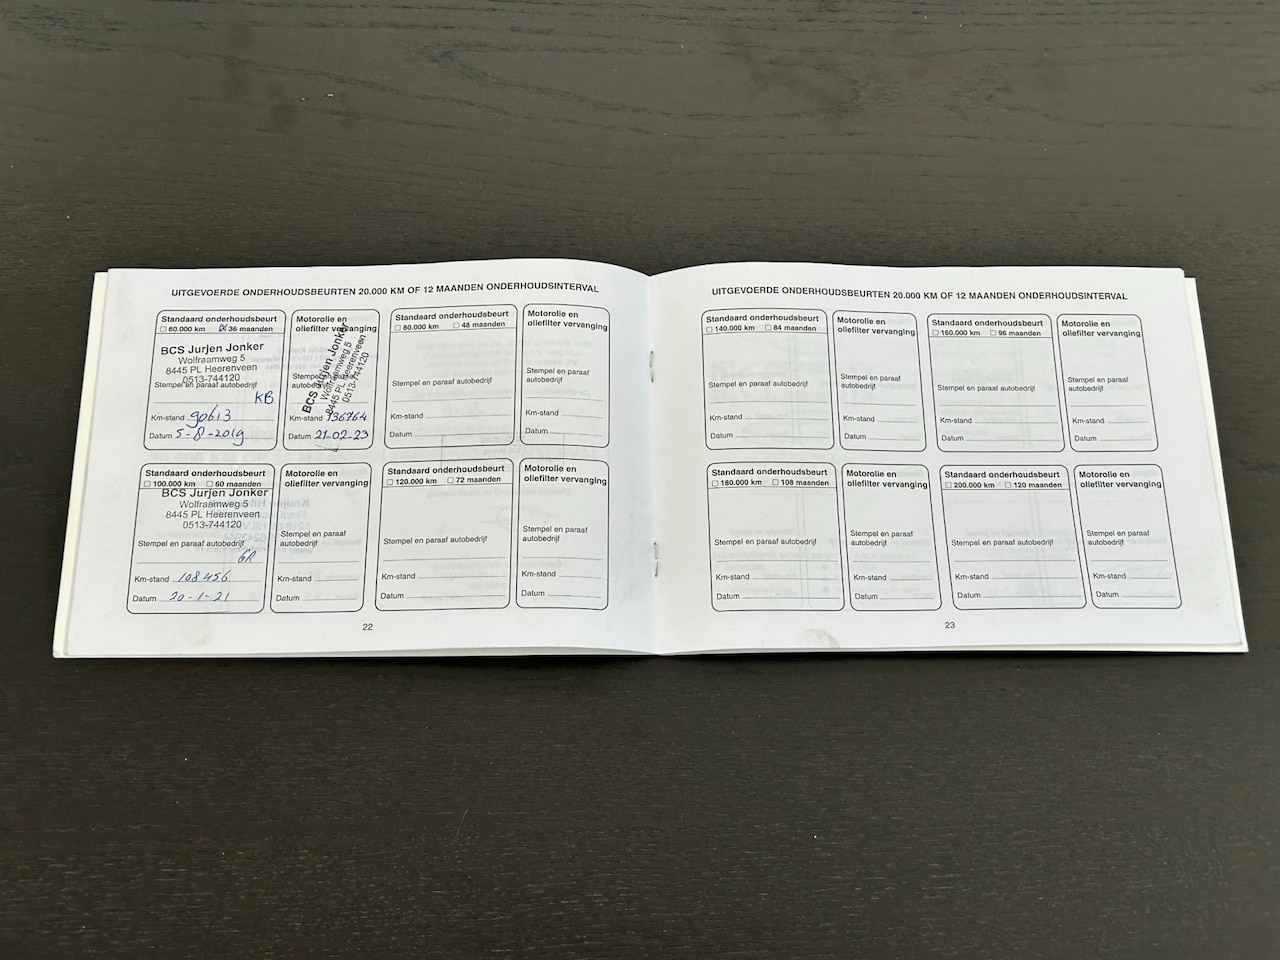 UITGEVOERDE ONDERHOUDSBEURTEN 20.000 KM OF 12 MAANDEN ONDERHOUDSINTERVAL
Standaard onderhoudsbeurt
60.000 km 36 maanden
BCS Jurjen Jonker
Wolfraamweg 5
8445 PL Heerenveen
0513-744120
Stempel en paraaf autobedrijf
KB
Km-stand 90613
Datum 5-8-2019
Motorolie en
oliefilter vervanging
BCS Jurjen Jonker
Wolfraamweg 5
8445 PL Heerenveen
0513-744120
Stempel en paraaf
autobedrijf
Km-stand 136764
Datum 21-02-23
Standaard onderhoudsbeurt
80.000 km 48 maanden
Stempel en paraaf autobedrijf
Km-stand
Datum
Motorolie en
oliefilter vervanging
Stempel en paraaf
autobedrijf
Km-stand
Datum
Standaard onderhoudsbeurt
100.000 km 60 maanden
BCS Jurjen Jonker
Wolfraamweg 5
8445 PL Heerenveen
0513-744120
Stempel en paraaf autobedrijf
Km-stand 108456
Datum 20-1-21
Motorolie en
oliefilter vervanging
Stempel en paraaf
autobedrijf
Km-stand
Datum
Standaard onderhoudsbeurt
120.000 km 72 maanden
Stempel en paraaf autobedrijf
Km-stand
Datum
Motorolie en
oliefilter vervanging
Stempel en paraaf
autobedrijf
Km-stand
Datum
22
UITGEVOERDE ONDERHOUDSBEURTEN 20.000 KM OF 12 MAANDEN ONDERHOUDSINTERVAL
Standaard onderhoudsbeurt
140.000 km 84 maanden
Stempel en paraaf autobedrijf
Km-stand
Datum
Motorolie en
oliefilter vervanging
Stempel en paraaf
autobedrijf
Km-stand
Datum
Standaard onderhoudsbeurt
160.000 km 96 maanden
Stempel en paraaf autobedrijf
Km-stand
Datum
Motorolie en
oliefilter vervanging
Stempel en paraaf
autobedrijf
Km-stand
Datum
Standaard onderhoudsbeurt
180.000 km 108 maanden
Stempel en paraaf autobedrijf
Km-stand
Datum
Motorolie en
oliefilter vervanging
Stempel en paraaf
autobedrijf
Km-stand
Datum
Standaard onderhoudsbeurt
200.000 km 120 maanden
Stempel en paraaf autobedrijf
Km-stand
Datum
Motorolie en
oliefilter vervanging
Stempel en paraaf
autobedrijf
Km-stand
Datum
23